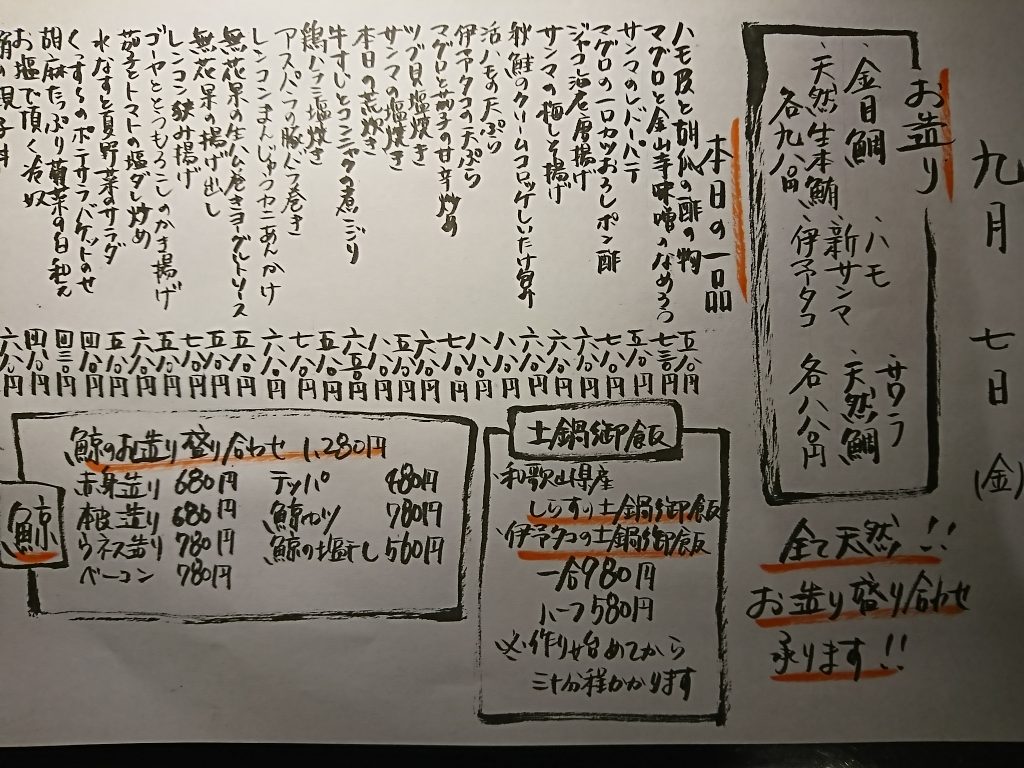 九月七日(金)
お造り
、金目鯛 、ハモ 、サワラ
、天然生本鮪 、新サンマ 、天然鯛
各九八〇円 、伊予タコ 各八八〇円
全て天然!!
お造り盛り合わせ
承ります!!
本日の一品
ハモ皮と胡瓜の酢の物 五八〇円
マグロと金山寺味噌のなめろう 七三〇円
サンマのレバーパテ 五八〇円
マグロの一口カツおろしポン酢 七八〇円
ジャコ海老唐揚げ 六八〇円
サンマの梅しそ揚げ 六八〇円
秋鮭のクリームコロッケしいたけ包み 六八〇円
活ハモの天ぷら 八八〇円
伊予タコの天ぷら 八八〇円
マグロと茄子の甘辛炒め 七八〇円
ツブ貝塩焼き 六八〇円
サンマの塩焼き 五八〇円
本日の荒炊き 八八〇円
牛すじとコンニャクの煮こごり 六五〇円
鶏ハラミ塩焼き 五八〇円
アスパラの豚バラ巻き 七八〇円
レンコンまんじゅうカニあんかけ 六八〇円
無花果の生ハム巻きヨーグルトソース 五八〇円
無花果の揚げ出し 五八〇円
レンコン挟み揚げ 七八〇円
ゴーヤととうもろこしのかき揚げ 五八〇円
茄子とトマトの塩ダレ炒め 六八〇円
水なすと夏野菜のサラダ 五八〇円
ポテサラバゲットのせ 四八〇円
胡麻たっぷり菊菜の白和え 四三〇円
お塩で頂く冷奴 四八〇円
六八〇円
土鍋御飯
、和歌山県産
しらすの土鍋御飯
、伊予タコの土鍋御飯
一合980円
ハーフ580円
※作り始めてから
三十分程かかります
鯨
鯨のお造り盛り合わせ 1,280円
赤身造り 680円 テッパ 480円
本皮造り 680円 鯨カツ 780円
ウネス造り 780円 鯨の塩干し 560円
ベーコン 780円